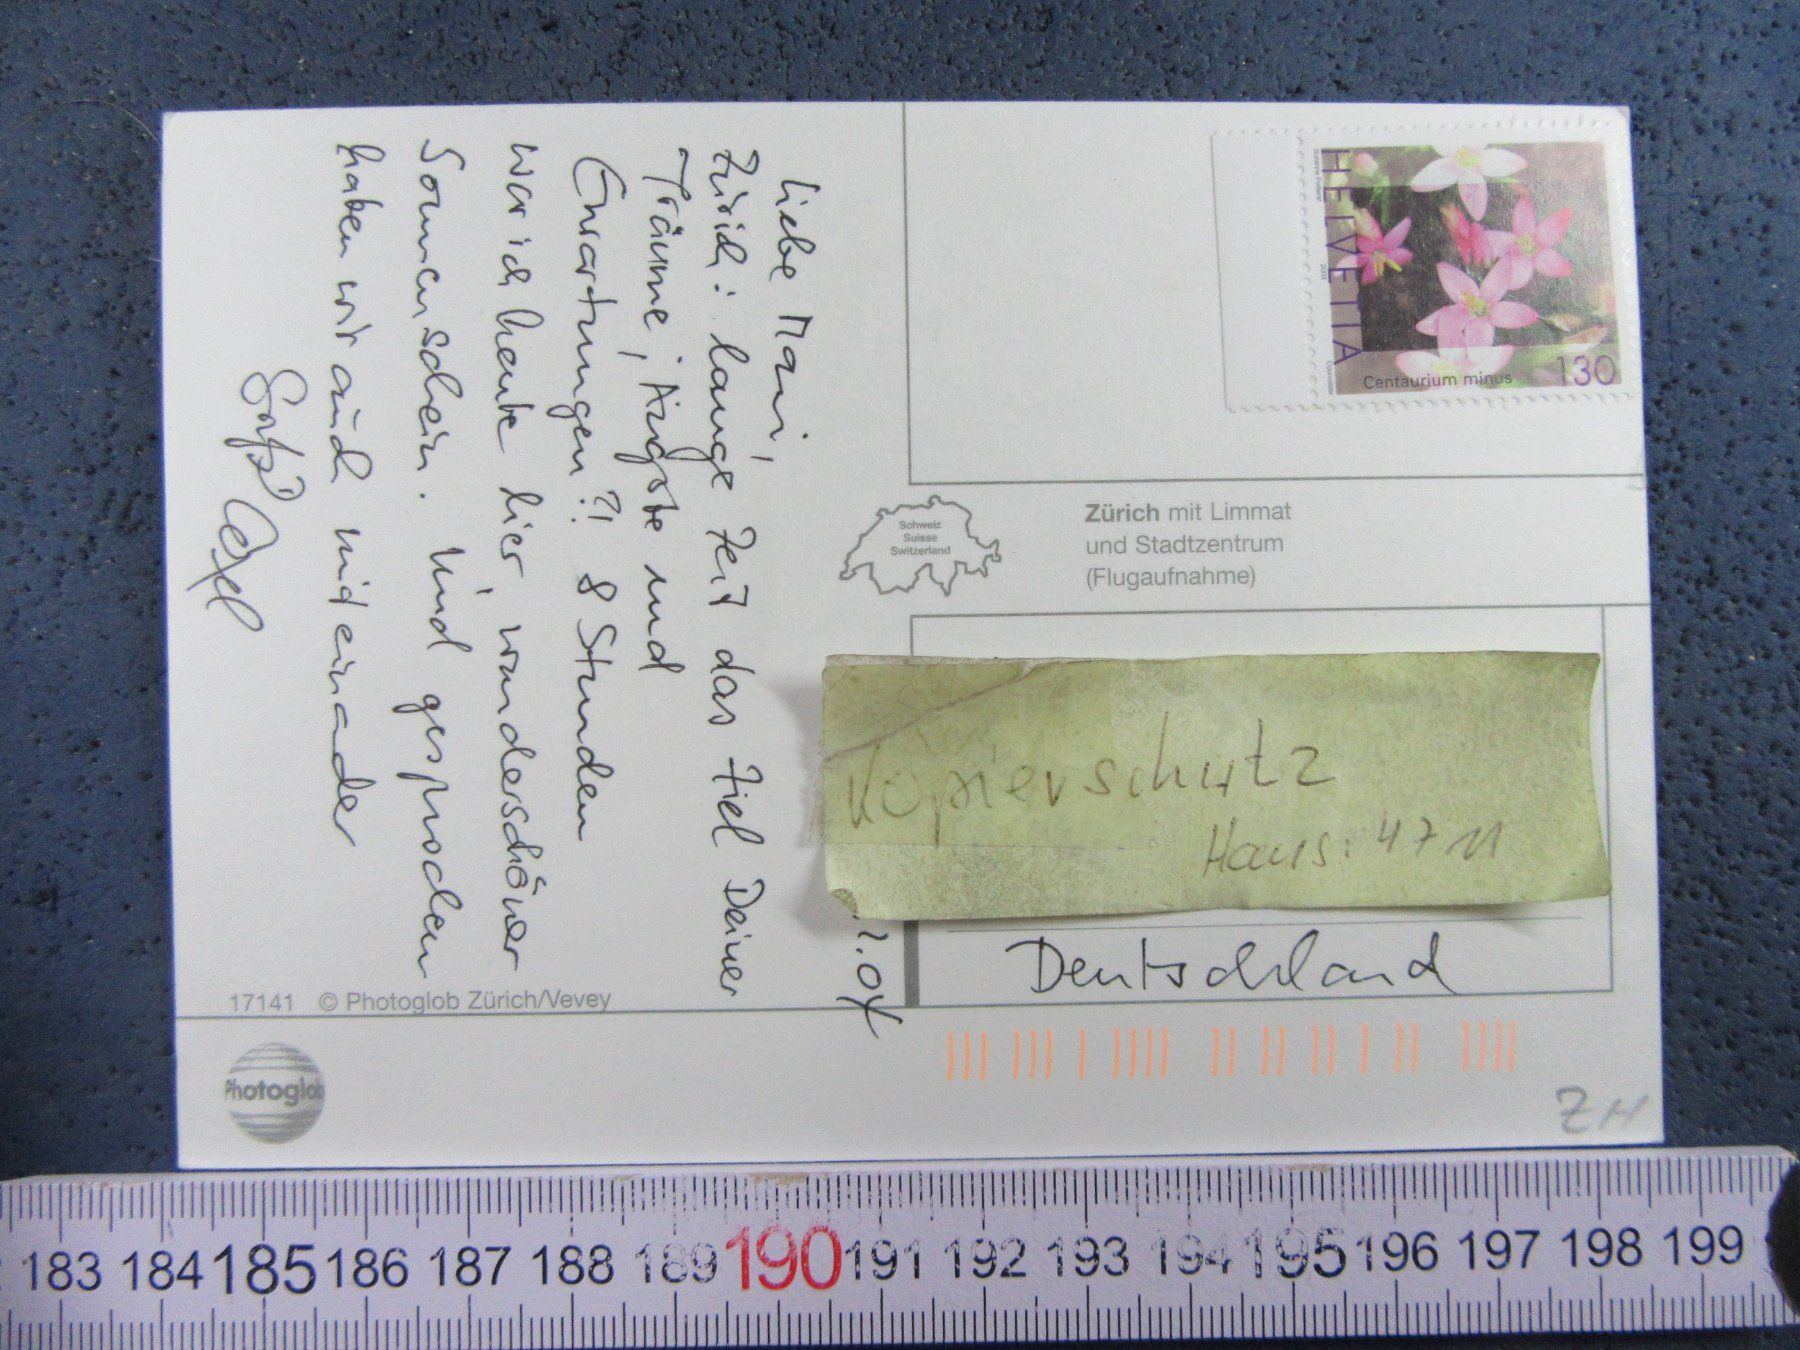 Liebe Mari,
Zürich: lange Zeit das Ziel Deiner
Träume, Ängste und
Erwartungen?! 8 Stunden
war ich heute hier, wunderschöner
Sonnenschein. Und gesprochen
haben wir auch miteinander
.04
HELVETIA
2003
Centaurium minus 130
Schweiz
Suisse
Switzerland
Zürich mit Limmat
und Stadtzentrum
(Flugaufnahme)
Kopierschutz
Hans: 4711
Deutschland
17141 © Photoglob Zürich/Vevey
Photoglob
ZH
183 184 185 186 187 188 189 190 191 192 193 194 195 196 197 198 199